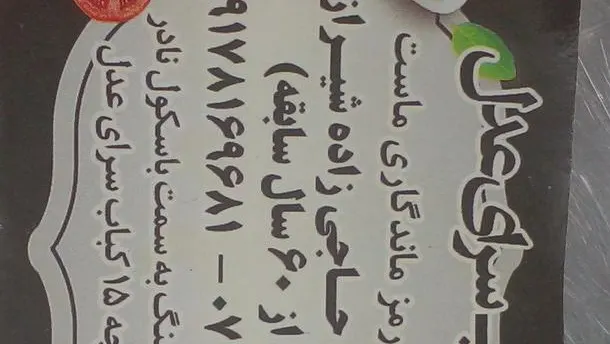 سرای عدل
رمز ماندگاری ماست
حاجی زاده شیراز
از ۶۰ سال سابقه)
۹۱۷۸۱۶۹۶۸۱ – ۰۷
به سمت باسکول نادر
۱۵ کباب سرای عدل